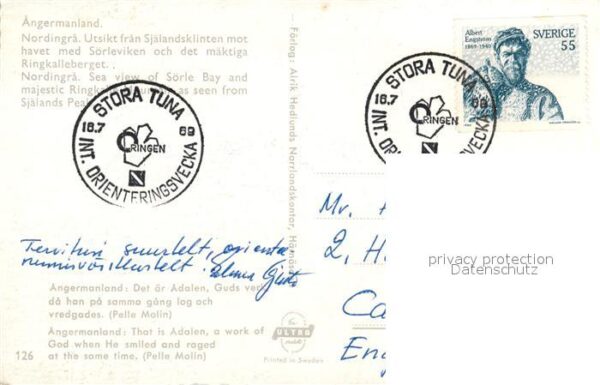 Ångermanland.
Nordingrå. Utsikt från Själandsklinten mot
havet med Sörleviken och det mäktiga
Ringkalleberget.
Nordingrå. Sea view of Sörle Bay and
majestic as seen from
Själands
Förlag: Alrik Hedlunds Norrlandskontor,
STORA TUNA
16.7 69
O RINGEN
INT. ORIENTERINGSVECKA
STORA TUNA
16.7 69
RINGEN
INT.
Albert
Engström
1869-1940
SVERIGE
55
Mr.
2, H
Ca
Eng
privacy protection
Datenschutz
Tervitusi suurtelt
Ångermanland: Det är Ådalen, Guds verk
då han på samma gång log och
vredgades. (Pelle Molin)
Ångermanland: That is Ådalen, a work of
God when He smiled and raged
at the same time. (Pelle Molin)
126
ULTRA
Printed in Sweden